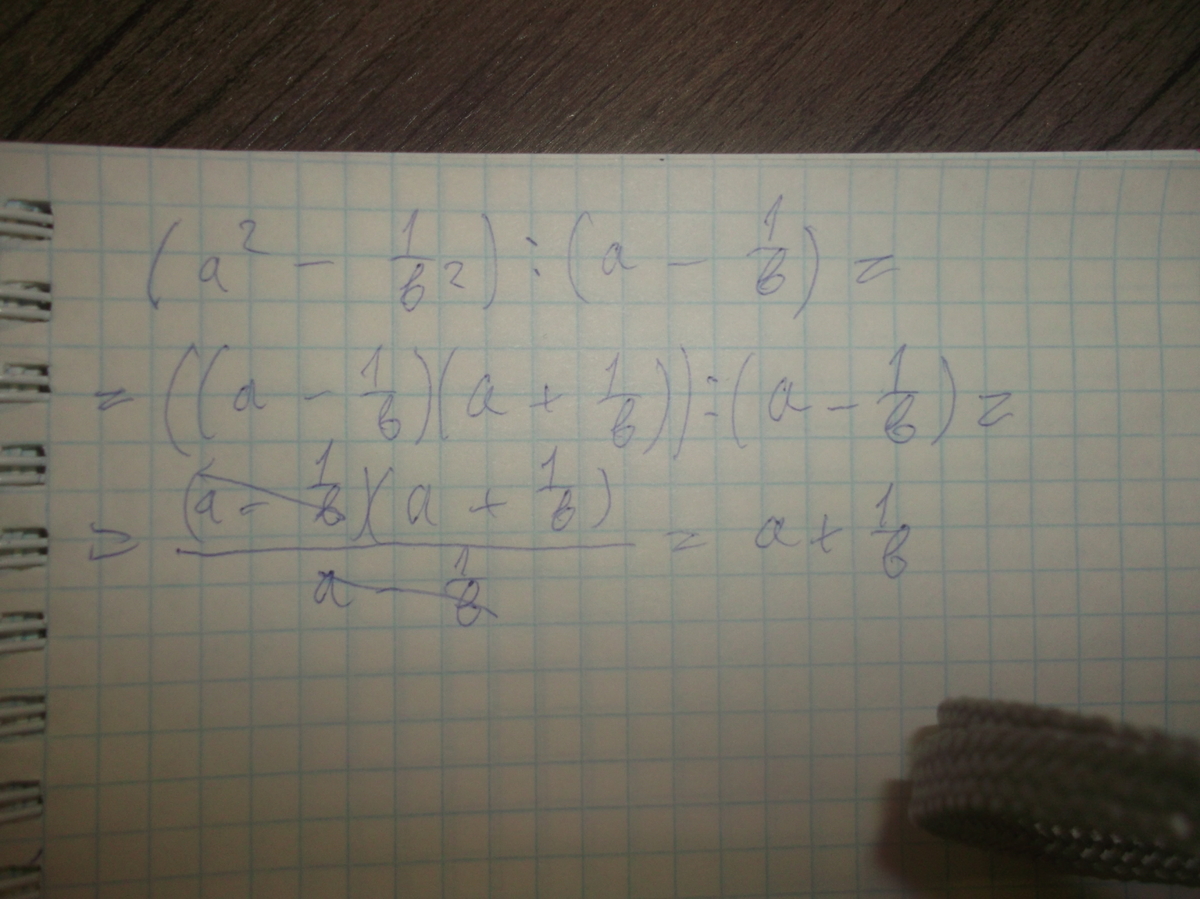 (a² - 1/b²) : (a - 1/b) =
= ((a - 1/b)(a + 1/b)) : (a - 1/b) =
= (a - 1/b)(a + 1/b) / (a - 1/b) = a + 1/b